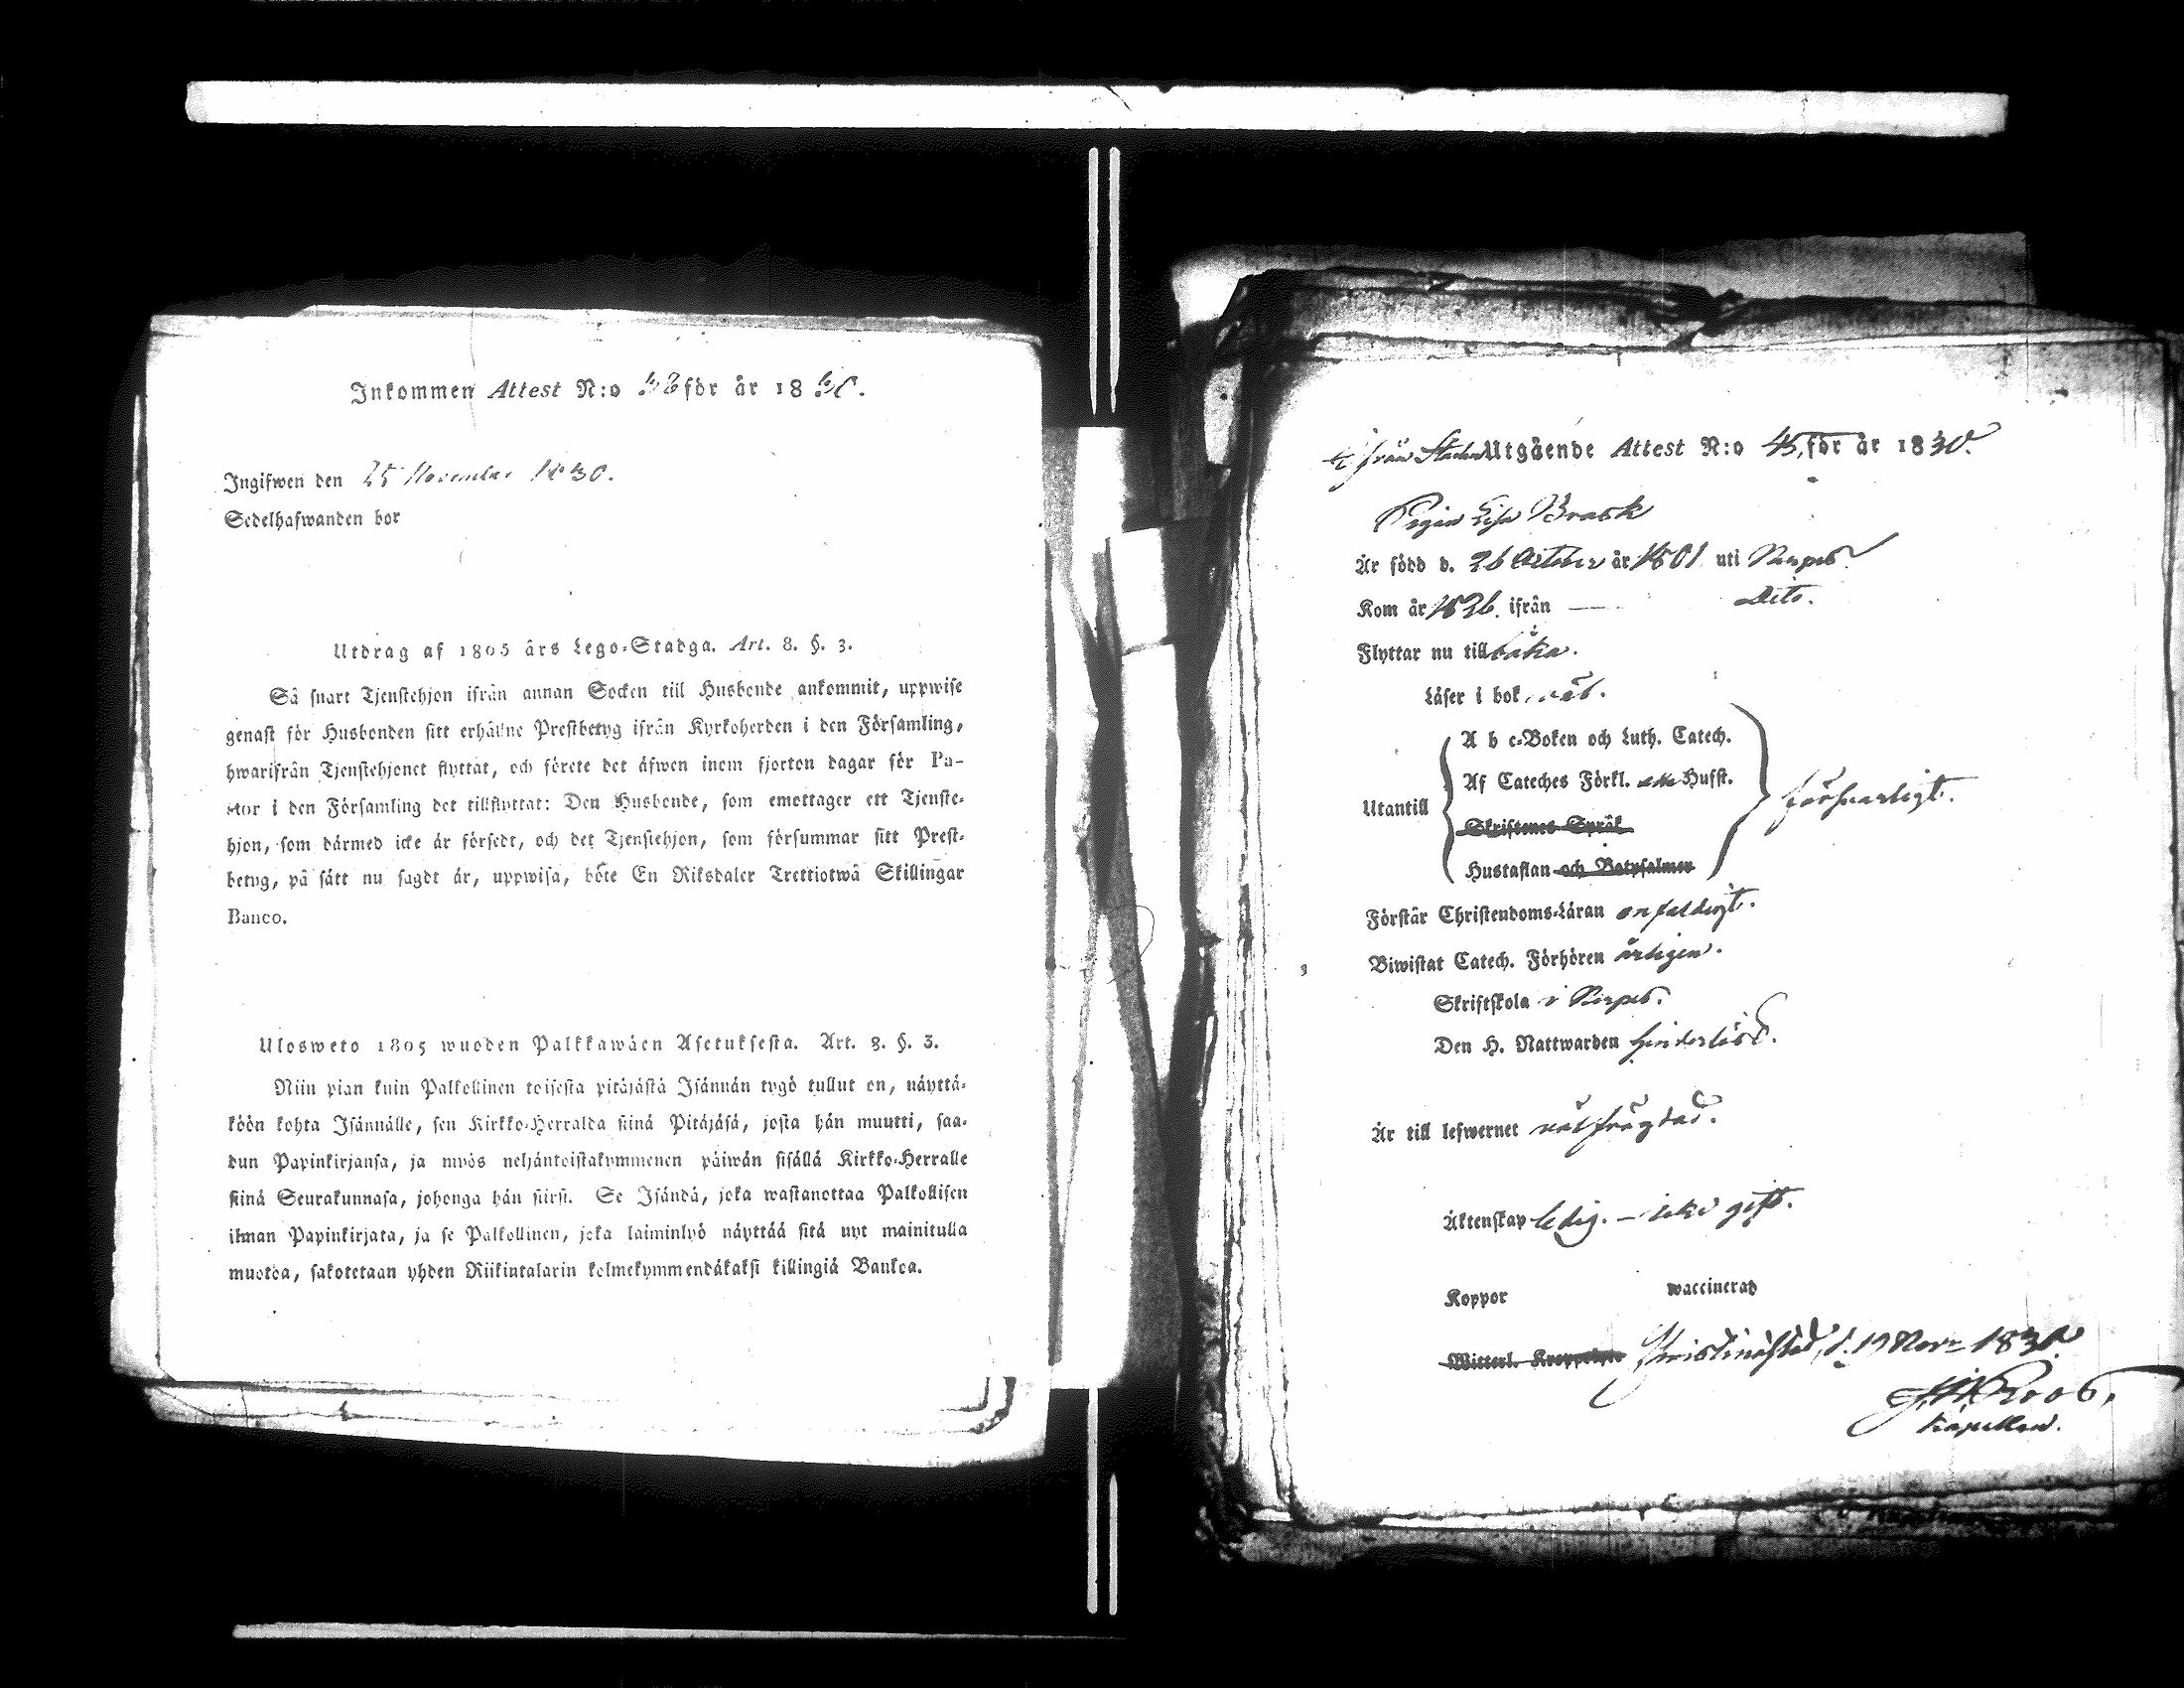 Inkommen Attest N:o 58 för år 1830.
Ingifwen den 25 November 1830.
Sedelhafwanden bor
Utdrag af 1805 års Lego-Stadga. Art. 8. §. 3.
Så snart Tjenstehjon ifrån annan Socken till Husbonde ankommit, uppwise
genast för Husbonden sitt erhållne Prestbetyg ifrån Kyrkoherden i den Församling,
hwarifrån Tjenstehjonet flyttat, och förete det äfwen inom fjorton dagar för Pa-
stor i den Församling det tillflyttat: Den Husbonde, som emottager ett Tjenste-
hjon, som därmed icke är försedt, och det Tjenstehjon, som försummar sitt Prest-
betyg, på sätt nu sagdt är, uppwisa, böte En Riksdaler Trettiotwå Skillingar
Banco.
Ulosweto 1805 wuoden Palkkawäen Asetuksesta. Art. 8. §. 3.
Niin pian kuin Palkollinen toisesta pitäjästä Isännän tygö tullut on, näyttä-
köön kohta Isännälle, sen Kirkko-Herralda siinä Pitäjäsä, josta hän muutti, saa-
dun Papinkirjansa, ja myös neljäntoistakymmenen päiwän sisällä Kirkko-Herralle
siinä Seurakunnasa, johonga hän siirsi. Se Isändä, joka wastanottaa Palkollisen
ilman Papinkirjata, ja se Palkollinen, joka laiminlyö näyttää sitä nyt mainitulla
muotoa, sakotetaan yhden Riikintalarin kolmekymmendäkaksi killingiä Bankoa.
från Staden Utgående Attest N:o 45, för år 1830.
Pigan Lisa Brask
Är född d. 26 October år 1801 uti Nerpes
Kom år 1826. ifrån — Dito.
Flyttar nu tillbaka.
Läser i bok näst.
Utantill
A b c-Boken och Luth. Catech.
Af Cateches Förkl. Husst.
Skriftenes Språk
Hustaflan och Botpsalmer
försvarligt.
Förstår Christendoms-Läran enfaldigt.
Biwistat Catech. Förhören årligen.
Skriftskola i Nerpes.
Den H. Nattwarden hinderlöst.
Är till lefwernet välfrägdad.
Äktenskap ledig. — icke gift.
Koppor waccinerad
Witterl. Christinestad, d. 17 Novr 1830.
Roos,
Kapellan.